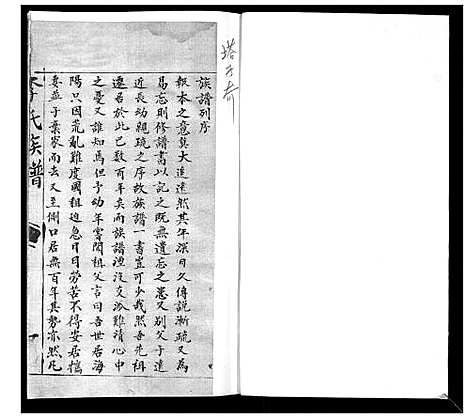 塔子奇
族譜列序
報本之意莫大追遠然其年深日久傳說漸疏又為
易忘則修譜書以記之既無遺忘之患又别父子遠
近長幼親疏之序故族譜一書豈可少哉然吾先祖
遷居於此已数百年矣而族譜湮没支派難清心中
之憂又誰知焉但予幼年嘗聞祖父言曰吾世居海
陽只因荒亂難度國祖迫急日日勞苦不得安居檔
委並子棄家而去又至側口居無百年其勢亦然凡
李氏族譜